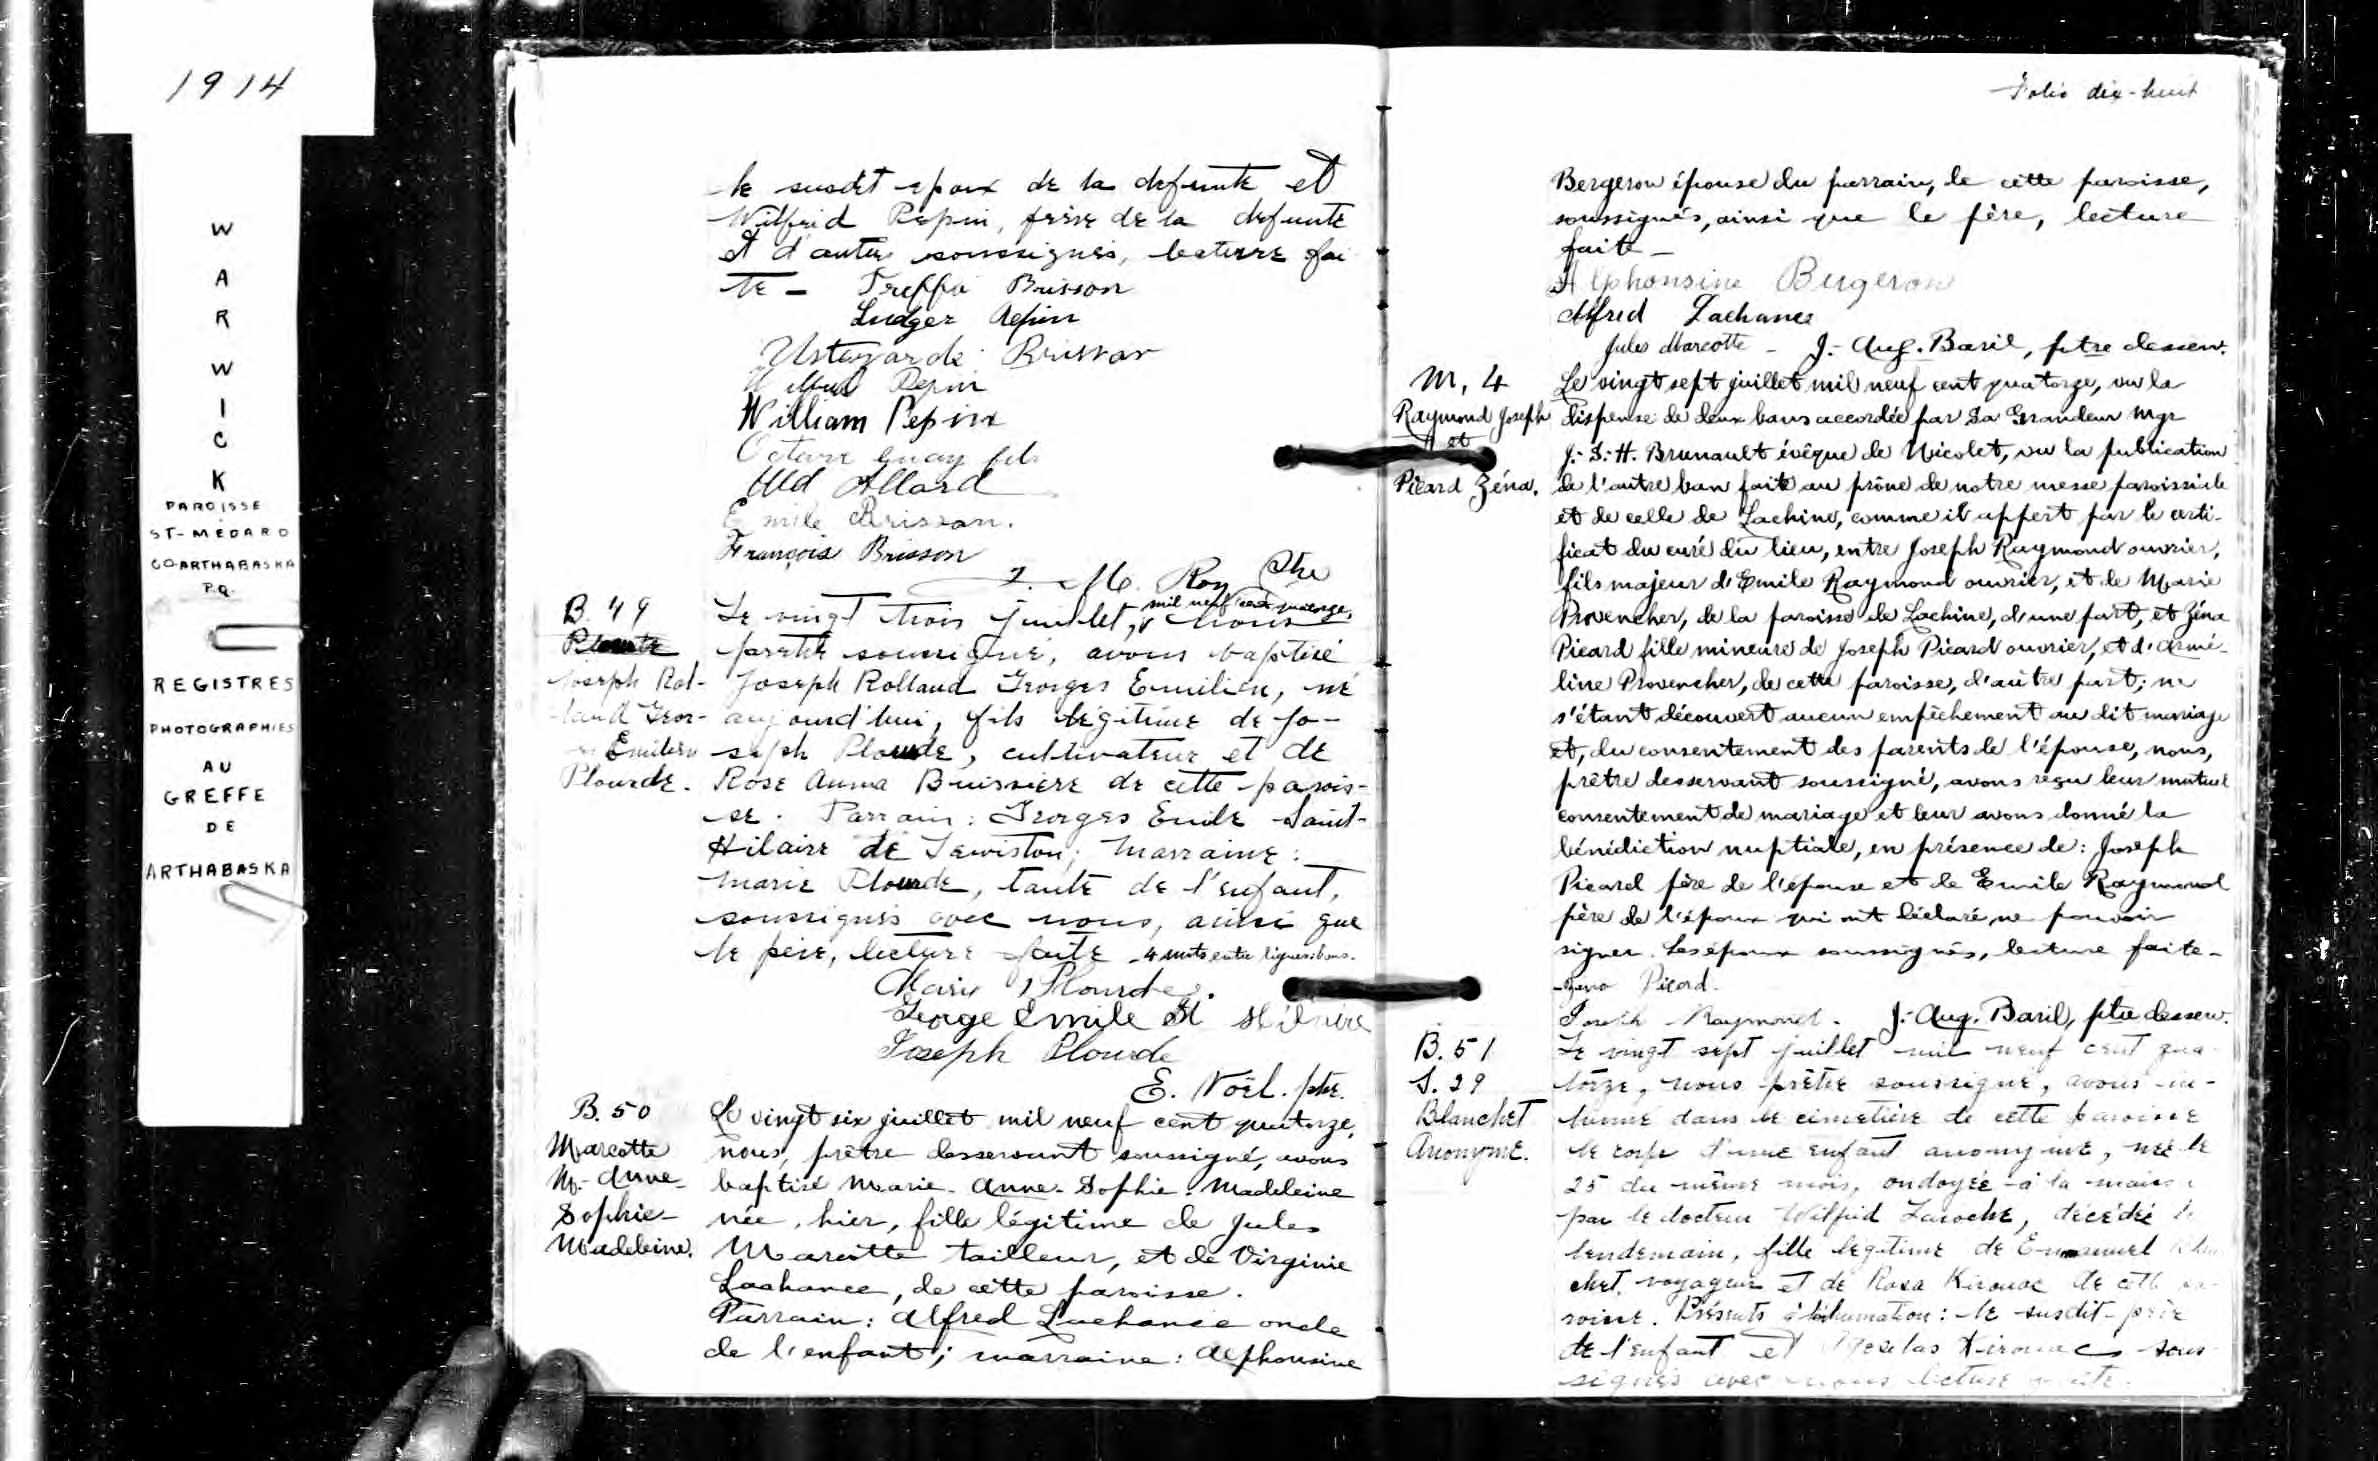 1914
W
A
R
W
I
C
K
PAROISSE
ST-MÉDARD
CO-ARTHABASKA
P.Q.
REGISTRES
PHOTOGRAPHIES
AU
GREFFE
DE
ARTHABASKA
le susdit epoux de la defunte et
Wilfrid Pepin, frère de la defunte
et d'autres soussignés, lecture fai
te - Treffé Brisson
Ludger Pepin
Brisson
Pepin
William Pepin
Octave guay fils
Allard
Emile Brisson.
François Brisson
Roy Ptre
B. 49
Joseph Rol-
land Geor-
Emilien
Plourde.
Le vingt trois juillet, mil neuf cent quatorze, nous
prêtre soussigné, avons baptisé
Joseph Rolland Georges Emilien, né
aujourd'hui, fils légitime de Jo-
seph Plourde, cultivateur et de
Rose Anna Buissière de cette parois-
se. Parrain: Georges Emile Saint-
Hilaire de Lewiston; Marraine:
Marie Plourde, tante de l'enfant,
soussignés avec nous, ainsi que
le père, lecture faite - 4 mots entre lignes: bons.
Marie Plourde.
George Emile St Hilaire
Joseph Plourde
E. Noël. ptre.
B. 50
Marcotte
M-Anne-
Sophie-
Madeleine.
Le vingt six juillet mil neuf cent quatorze,
nous, prêtre desservant soussigné, avons
baptisé Marie-Anne-Sophie-Madeleine
née, hier, fille légitime de Jules
Marcotte tailleur, et de Virginie
Lachance, de cette paroisse.
Parrain: Alfred Lachance oncle
de l'enfant; marraine: Alphonsine
Folio dix-huit
Bergeron épouse du parrain, de cette paroisse,
soussignés, ainsi que le père, lecture
faite -
Alphonsine Bergeron
Alfred Lachance
Jules Marcotte - J.-Aug. Baril, ptre desserv.
M. 4
Raymond Joseph
et
Picard Zéna.
Le vingt sept juillet mil neuf cent quatorze, vu la
dispense de deux bans accordée par Sa Grandeur Mgr
J.-S.-H. Brunault évêque de Nicolet, vu la publication
de l'autre ban faite au prône de notre messe paroissiale
et de celle de Lachine, comme il appert par le certi-
ficat du curé du lieu, entre Joseph Raymond ouvrier,
fils majeur d'Emile Raymond ouvrier, et de Marie
Provencher, de la paroisse de Lachine, d'une part, et Zéna
Picard fille mineure de Joseph Picard ouvrier, et d'Armé-
line Provencher, de cette paroisse, d'autre part; ne
s'étant découvert aucun empêchement au dit mariage
et, du consentement des parents de l'épouse, nous,
prêtre desservant soussigné, avons reçu leur mutuel
consentement de mariage et leur avons donné la
bénédiction nuptiale, en présence de: Joseph
Picard père de l'épouse et de Emile Raymond
père de l'époux qui ont déclaré ne pouvoir
signer. Les époux soussignés, lecture faite -
Zena Picard.
Joseph Raymond. J.-Aug. Baril, ptre desserv.
B. 51
S. 29
Blanchet
Anonyme.
Le vingt sept juillet mil neuf cent qua
torze, nous prêtre soussigné, avons in-
humé dans le cimetière de cette paroisse
le corps d'une enfant anonyme, née le
25 du même mois, ondoyée à la maison
par le docteur Wilfrid Laroche, décédée le
lendemain, fille légitime de Emanuel Blan
chet, voyageur et de Rosa Kirouac de cette pa-
roisse. Présents à l'inhumation: le susdit père
de l'enfant et Kirouac sous-
signés avec nous lecture faite.